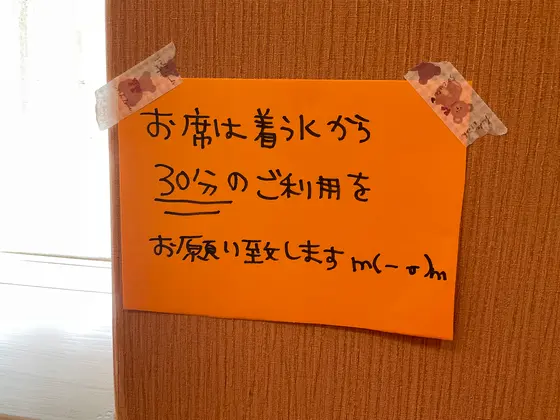 お席は着席から
30分のご利用を
お願い致します m(- -)m